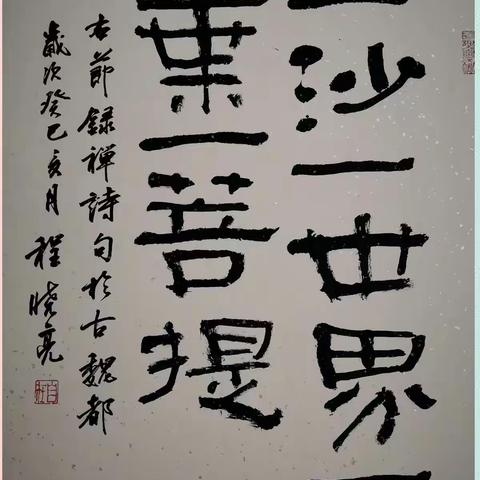 一沙一世界一
葉一菩提
右節録禅詩句於古魏都
歲次癸巳亥月程晓亮